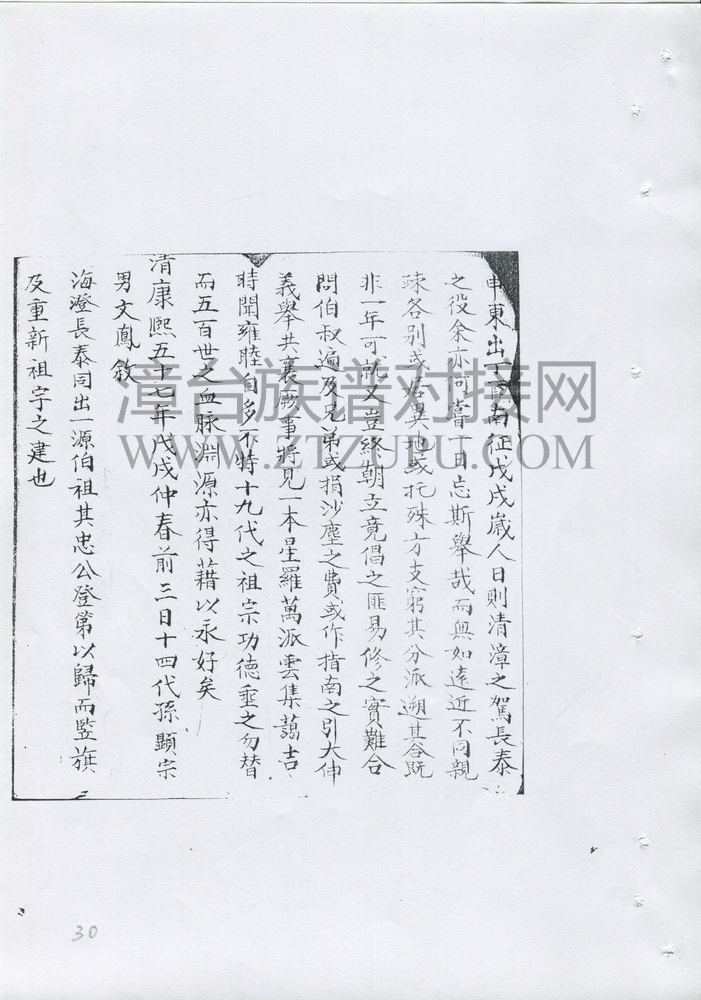 申東出丁酉南征戊戌歲人日則清漳之駕長泰
之役余亦何嘗一日忘斯舉哉而無如遠近不同親
疎各別或居異地或托殊方支窮其分派遡其合既
非一年可就又豈終朝立竟倡之匪易修之實難合
問伯叔遍及兄弟或捐沙塵之費或作指南之引大伸
義舉共襄厥事將見一本星羅萬派雲集藹吉
時聞雍睦自多不特十九代之祖宗功德垂之勿替
而五百世之血脉淵源亦得藉以永好矣
清康熙五十七年戊戌仲春前三日十四代孫顯宗
男文鳳敘
海澄長泰同出一源伯祖其忠公登第以歸而豎旗
及重新祖宇之建也
漳台族谱对接网
WWW.ZTZUPU.COM
30